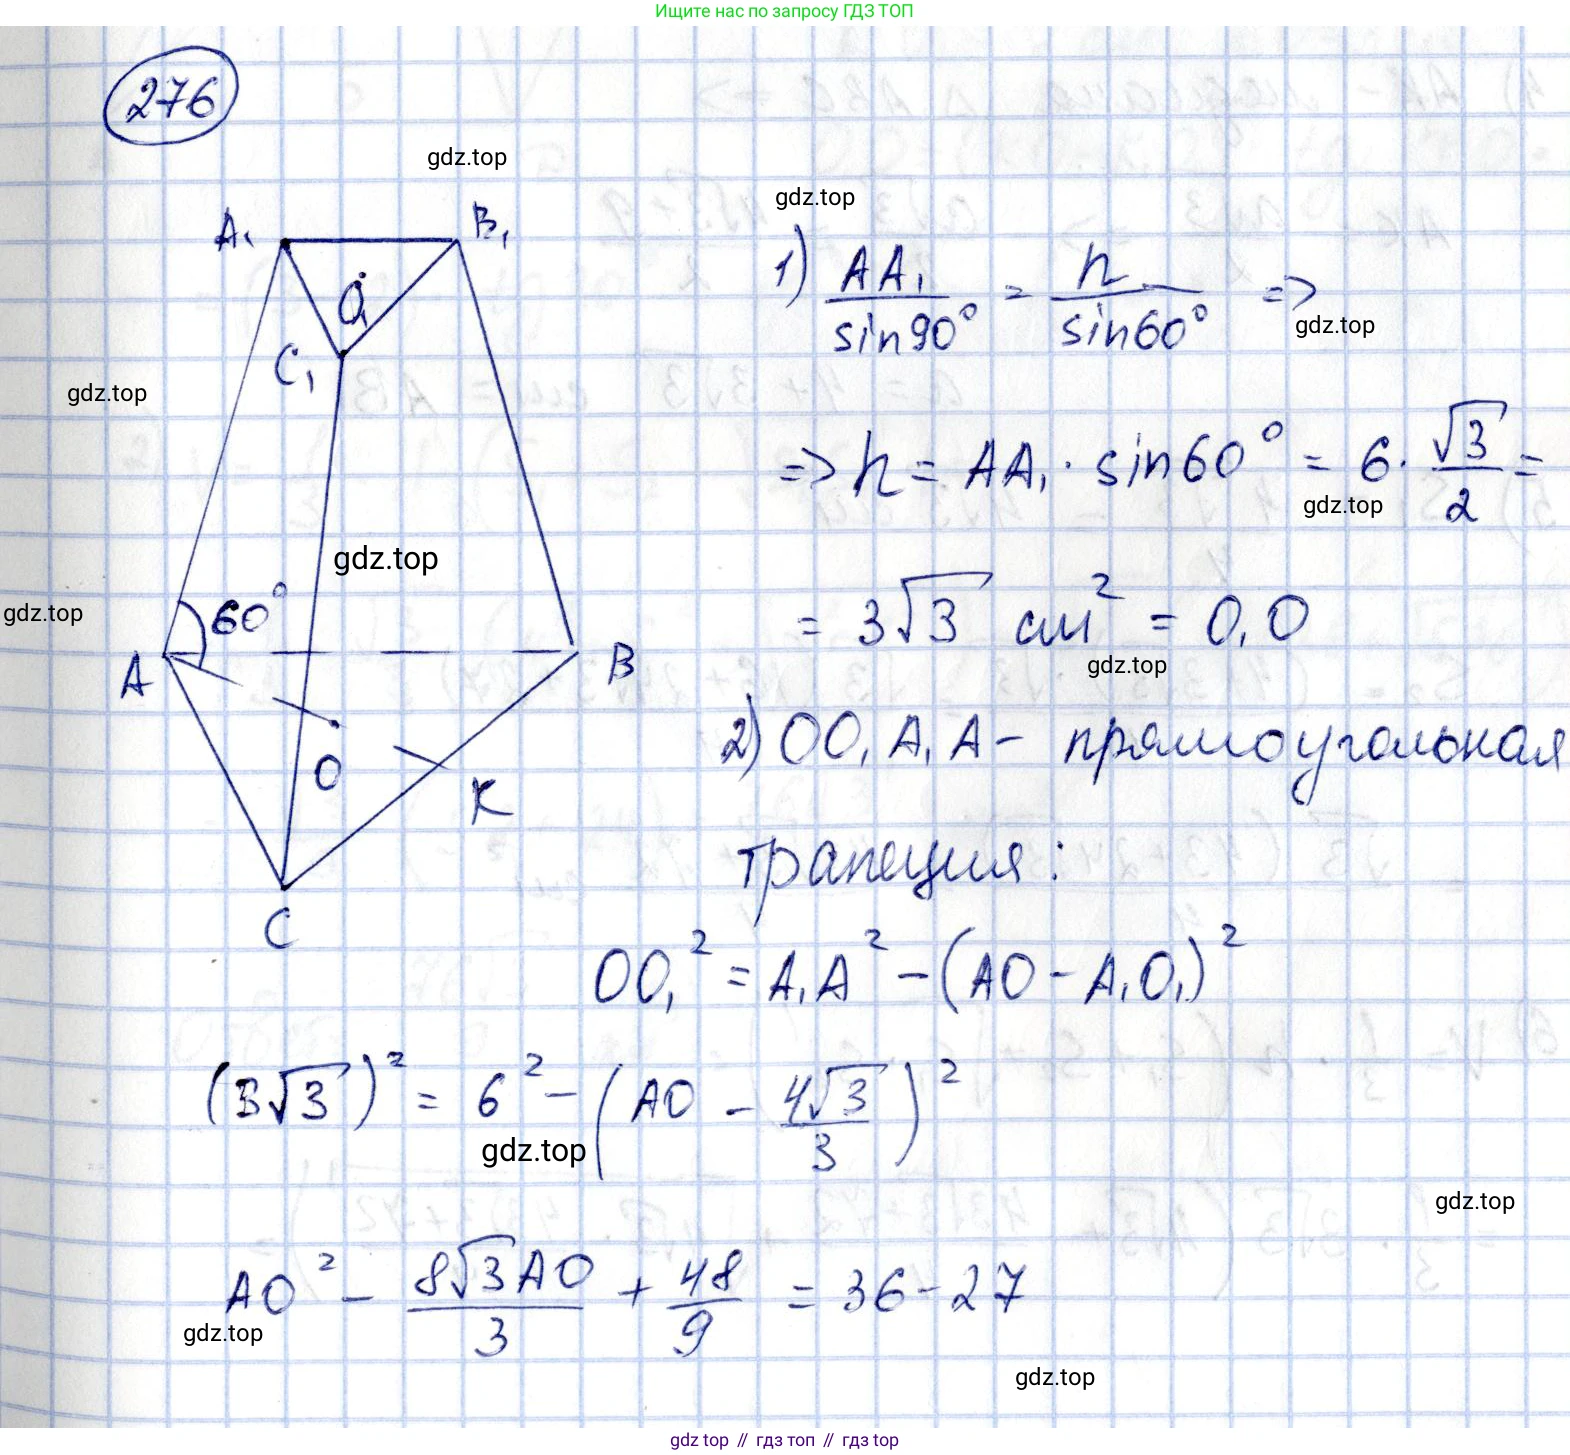 Ищите нас по запросу ГДЗ ТОП
276
gdz.top
gdz.top
A₁ B₁
O₁
C₁
gdz.top
gdz.top
60°
gdz.top
A B
O
K
C
1) AA₁/sin90° = h/sin60° =>
gdz.top
=> h = AA₁ · sin60° = 6 · √3/2 =
gdz.top
= 3√3 см² = O₁O
gdz.top
2) OO₁A₁A - прямоугольная
трапеция:
OO₁² = A₁A² - (AO - A₁O₁)²
(3√3)² = 6² - (AO - 4√3/3)²
gdz.top
gdz.top
AO² - 8√3AO/3 + 48/9 = 36 - 27
gdz.top
gdz.top
gdz top // гдз топ // гдз top